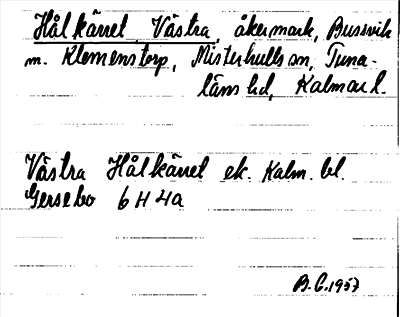 Hålkärret, Västra, åkermark, Bussvik
m. Klemenstorp, Misterhults sn, Tuna-
läns hd, Kalmar l.
Västra Hålkärret ek. Kalm. bl.
Gersebo 6 H 4a
B.C. 1957